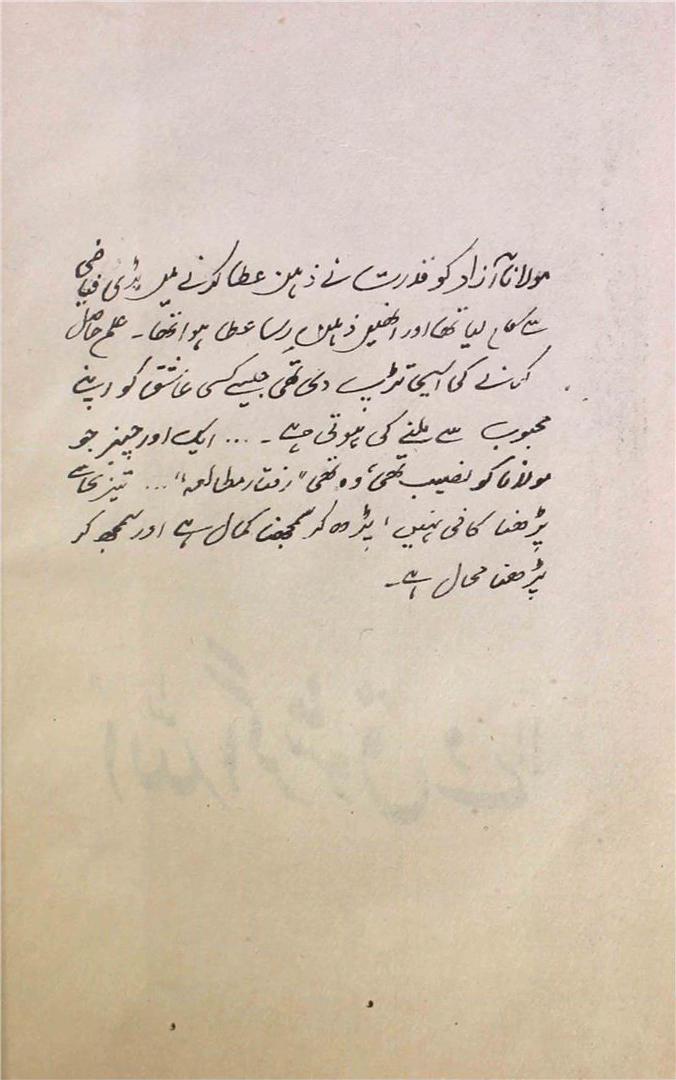 مولانا آزاد کو قدرت نے ذہن عطا کرنے میں بڑی فیاضی
سے کام لیا تھا اور انھیں ذہنِ رسا عطا ہوا تھا۔ علم حاصل
کرنے کی ایسی تڑپ دی تھی جیسے کسی عاشق کو اپنے
محبوب سے ملنے کی ہوتی ہے۔ ... ایک اور چیز جو
مولانا کو نصیب تھی، وہ تھی "رفتار مطالعہ" ... تیزی سے
پڑھنا کافی نہیں، پڑھ کر سمجھنا کمال ہے اور سمجھ کر
پڑھنا محال ہے۔